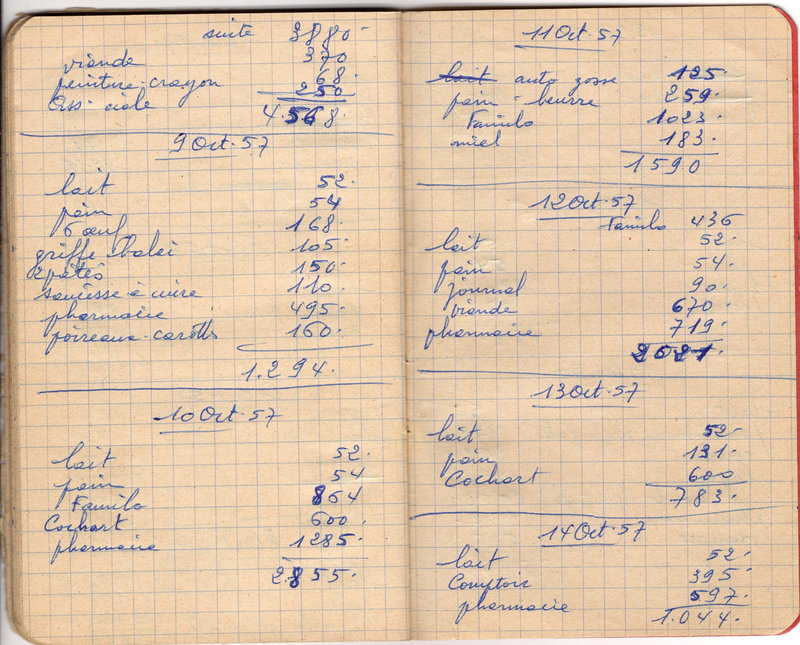 suite 3880
viande 370
peinture crayon 68
Ass. ciale 250
4.568
9 Oct. 57
lait 52
pain 54
6 œuf 168
griffe balai 105
2 pâtés 150
saucisse à cuire 110
pharmacie 495
poireaux. carotts 160
1.294
10 Oct. 57
lait 52
pain 54
Familo 864
Cochart 600
pharmacie 1285
2.855
11 Oct. 57
lait auto gosse 125
pain - beurre 259
Familo 1023
miel 183
1590
12 Oct. 57
Familo 436
lait 52
pain 54
journal 90
viande 670
pharmacie 719
2021
13 Oct. 57
lait 52
pain 131
Cochart 600
783
14 Oct. 57
lait 52
Comptoir 395
pharmacie 597
1.044